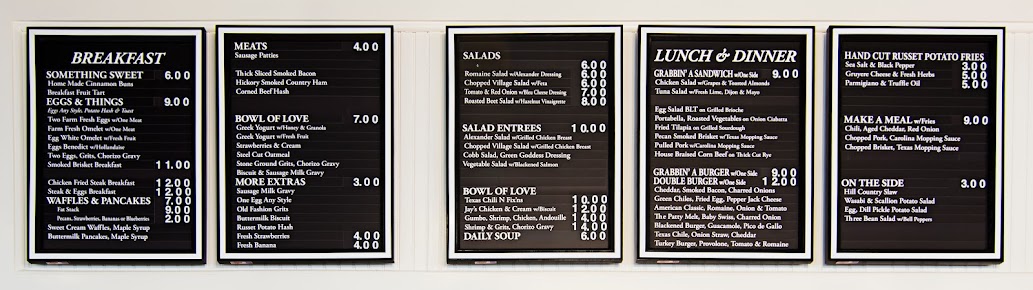 BREAKFAST
SOMETHING SWEET 6.00
Home Made Cinnamon Buns
Breakfast Fruit Tart
EGGS & THINGS 9.00
Eggs Any Style, Potato Hash & Toast
Two Farm Fresh Eggs w/One Meat
Farm Fresh Omelet w/One Meat
Egg White Omelet w/Fresh Fruit
Eggs Benedict w/Hollandaise
Two Eggs, Grits, Chorizo Gravy
Smoked Brisket Breakfast 11.00
Chicken Fried Steak Breakfast 12.00
Steak & Eggs Breakfast 12.00
WAFFLES & PANCAKES 7.00
Fat Stack 9.00
Pecans, Strawberries, Bananas or Blueberries 2.00
Sweet Cream Waffles, Maple Syrup
Buttermilk Pancakes, Maple Syrup
MEATS 4.00
Sausage Patties
Thick Sliced Smoked Bacon
Hickory Smoked Country Ham
Corned Beef Hash
BOWL OF LOVE 7.00
Greek Yogurt w/Honey & Granola
Greek Yogurt w/Fresh Fruit
Strawberries & Cream
Steel Cut Oatmeal
Stone Ground Grits, Chorizo Gravy
Biscuit & Sausage Milk Gravy
MORE EXTRAS 3.00
Sausage Milk Gravy
One Egg Any Style
Old Fashion Grits
Buttermilk Biscuit
Russet Potato Hash
Fresh Strawberries 4.00
Fresh Banana 4.00
SALADS
Romaine Salad w/Alexander Dressing 6.00
Chopped Village Salad w/Feta 6.00
Tomato & Red Onion w/Bleu Cheese Dressing 7.00
Roasted Beet Salad w/Hazelnut Vinaigrette 8.00
SALAD ENTREES 10.00
Alexander Salad w/Grilled Chicken Breast
Chopped Village Salad w/Grilled Chicken Breast
Cobb Salad, Green Goddess Dressing
Vegetable Salad w/Blackened Salmon
BOWL OF LOVE
Texas Chili N Fix'ns 10.00
Jay's Chicken & Cream w/Biscuit 12.00
Gumbo, Shrimp, Chicken, Andouille 14.00
Shrimp & Grits, Chorizo Gravy 14.00
DAILY SOUP 6.00
LUNCH & DINNER
GRABBIN' A SANDWICH w/One Side 9.00
Chicken Salad w/Grapes & Toasted Almonds
Tuna Salad w/Fresh Lime, Dijon & Mayo
Egg Salad BLT on Grilled Brioche
Portabella, Roasted Vegetables on Onion Ciabatta
Fried Tilapia on Grilled Sourdough
Pecan Smoked Brisket w/Texas Mopping Sauce
Pulled Pork w/Carolina Mopping Sauce
House Braised Corn Beef on Thick Cut Rye
GRABBIN' A BURGER w/One Side 9.00
DOUBLE BURGER w/One Side 12.00
Cheddar, Smoked Bacon, Charred Onions
Green Chiles, Fried Egg, Pepper Jack Cheese
American Classic, Romaine, Onion & Tomato
The Patty Melt, Baby Swiss, Charred Onion
Blackened Burger, Guacamole, Pico de Gallo
Texas Chile, Onion Straw, Cheddar
Turkey Burger, Provolone, Tomato & Romaine
HAND CUT RUSSET POTATO FRIES
Sea Salt & Black Pepper 3.00
Gruyere Cheese & Fresh Herbs 5.00
Parmigiano & Truffle Oil 5.00
MAKE A MEAL w/Fries 9.00
Chili, Aged Cheddar, Red Onion
Chopped Pork, Carolina Mopping Sauce
Chopped Brisket, Texas Mopping Sauce
ON THE SIDE 3.00
Hill Country Slaw
Wasabi & Scallion Potato Salad
Egg, Dill Pickle Potato Salad
Three Bean Salad w/Bell Peppers